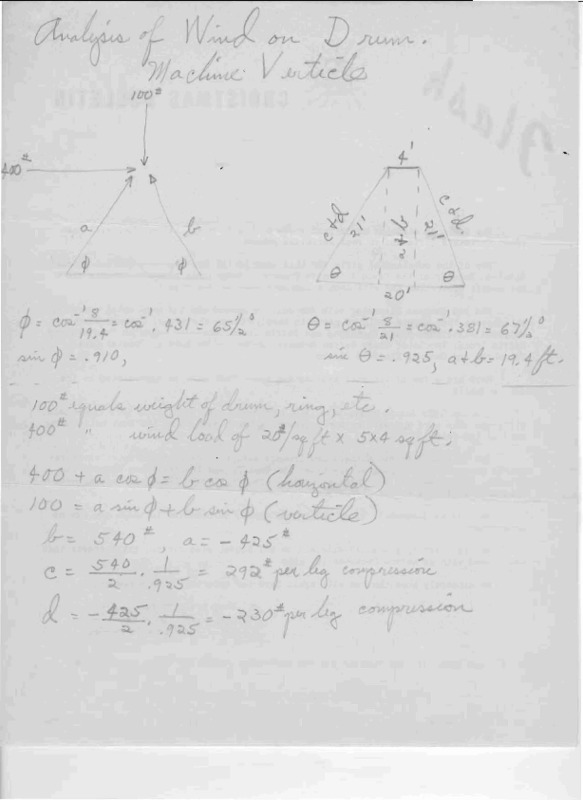 Analysis of Wind on Drum.
Machine Verticle
100#
400#
a
b
φ
φ
4'
c & d
21'
a & b
21'
c & d.
θ
θ
20'
φ = cos⁻¹ 8/19.4 = cos⁻¹ .431 = 65 1/2°
θ = cos⁻¹ 8/21 = cos⁻¹ .381 = 67 1/2°
sin φ = .910,
sin θ = .925, a & b = 19.4 ft.
100# equals weight of drum, ring, etc.
400# " wind load of 20#/sq ft x 5x4 sq ft;
400 + a cos φ = b cos φ (horizontal)
100 = a sin φ + b sin φ (verticle)
b = 540#, a = - 425#
c = 540/2 · 1/.925 = 292# per leg compression
d = - 425/2 · 1/.925 = - 230# per leg compression